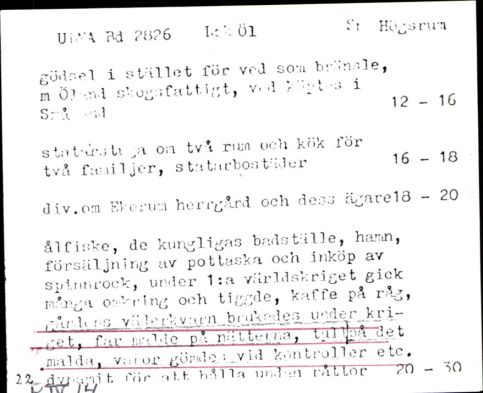 ULMA Bd 2826 Öl Högsrum
gödsel i stället för ved som bränsle,
m Öland skogsfattigt, ved köptes i
Småland 12 - 16
statarstuga om två rum och kök för
två familjer, statarbostäder 16 - 18
div.om Ekerum herrgård och dess ägare18 - 20
ålfiske, de kungligas badställe, hamn,
försäljning av pottaska och inköp av
spinnrock, under 1:a världskriget gick
många omkring och tiggde, kaffe på råg,
gårdens väderkvarn brukades under kri-
get, far malde på nätterna, tull på det
malda, varor gömdes vid kontroller etc.
22 dynamit för att hålla undan råttor 20 - 30